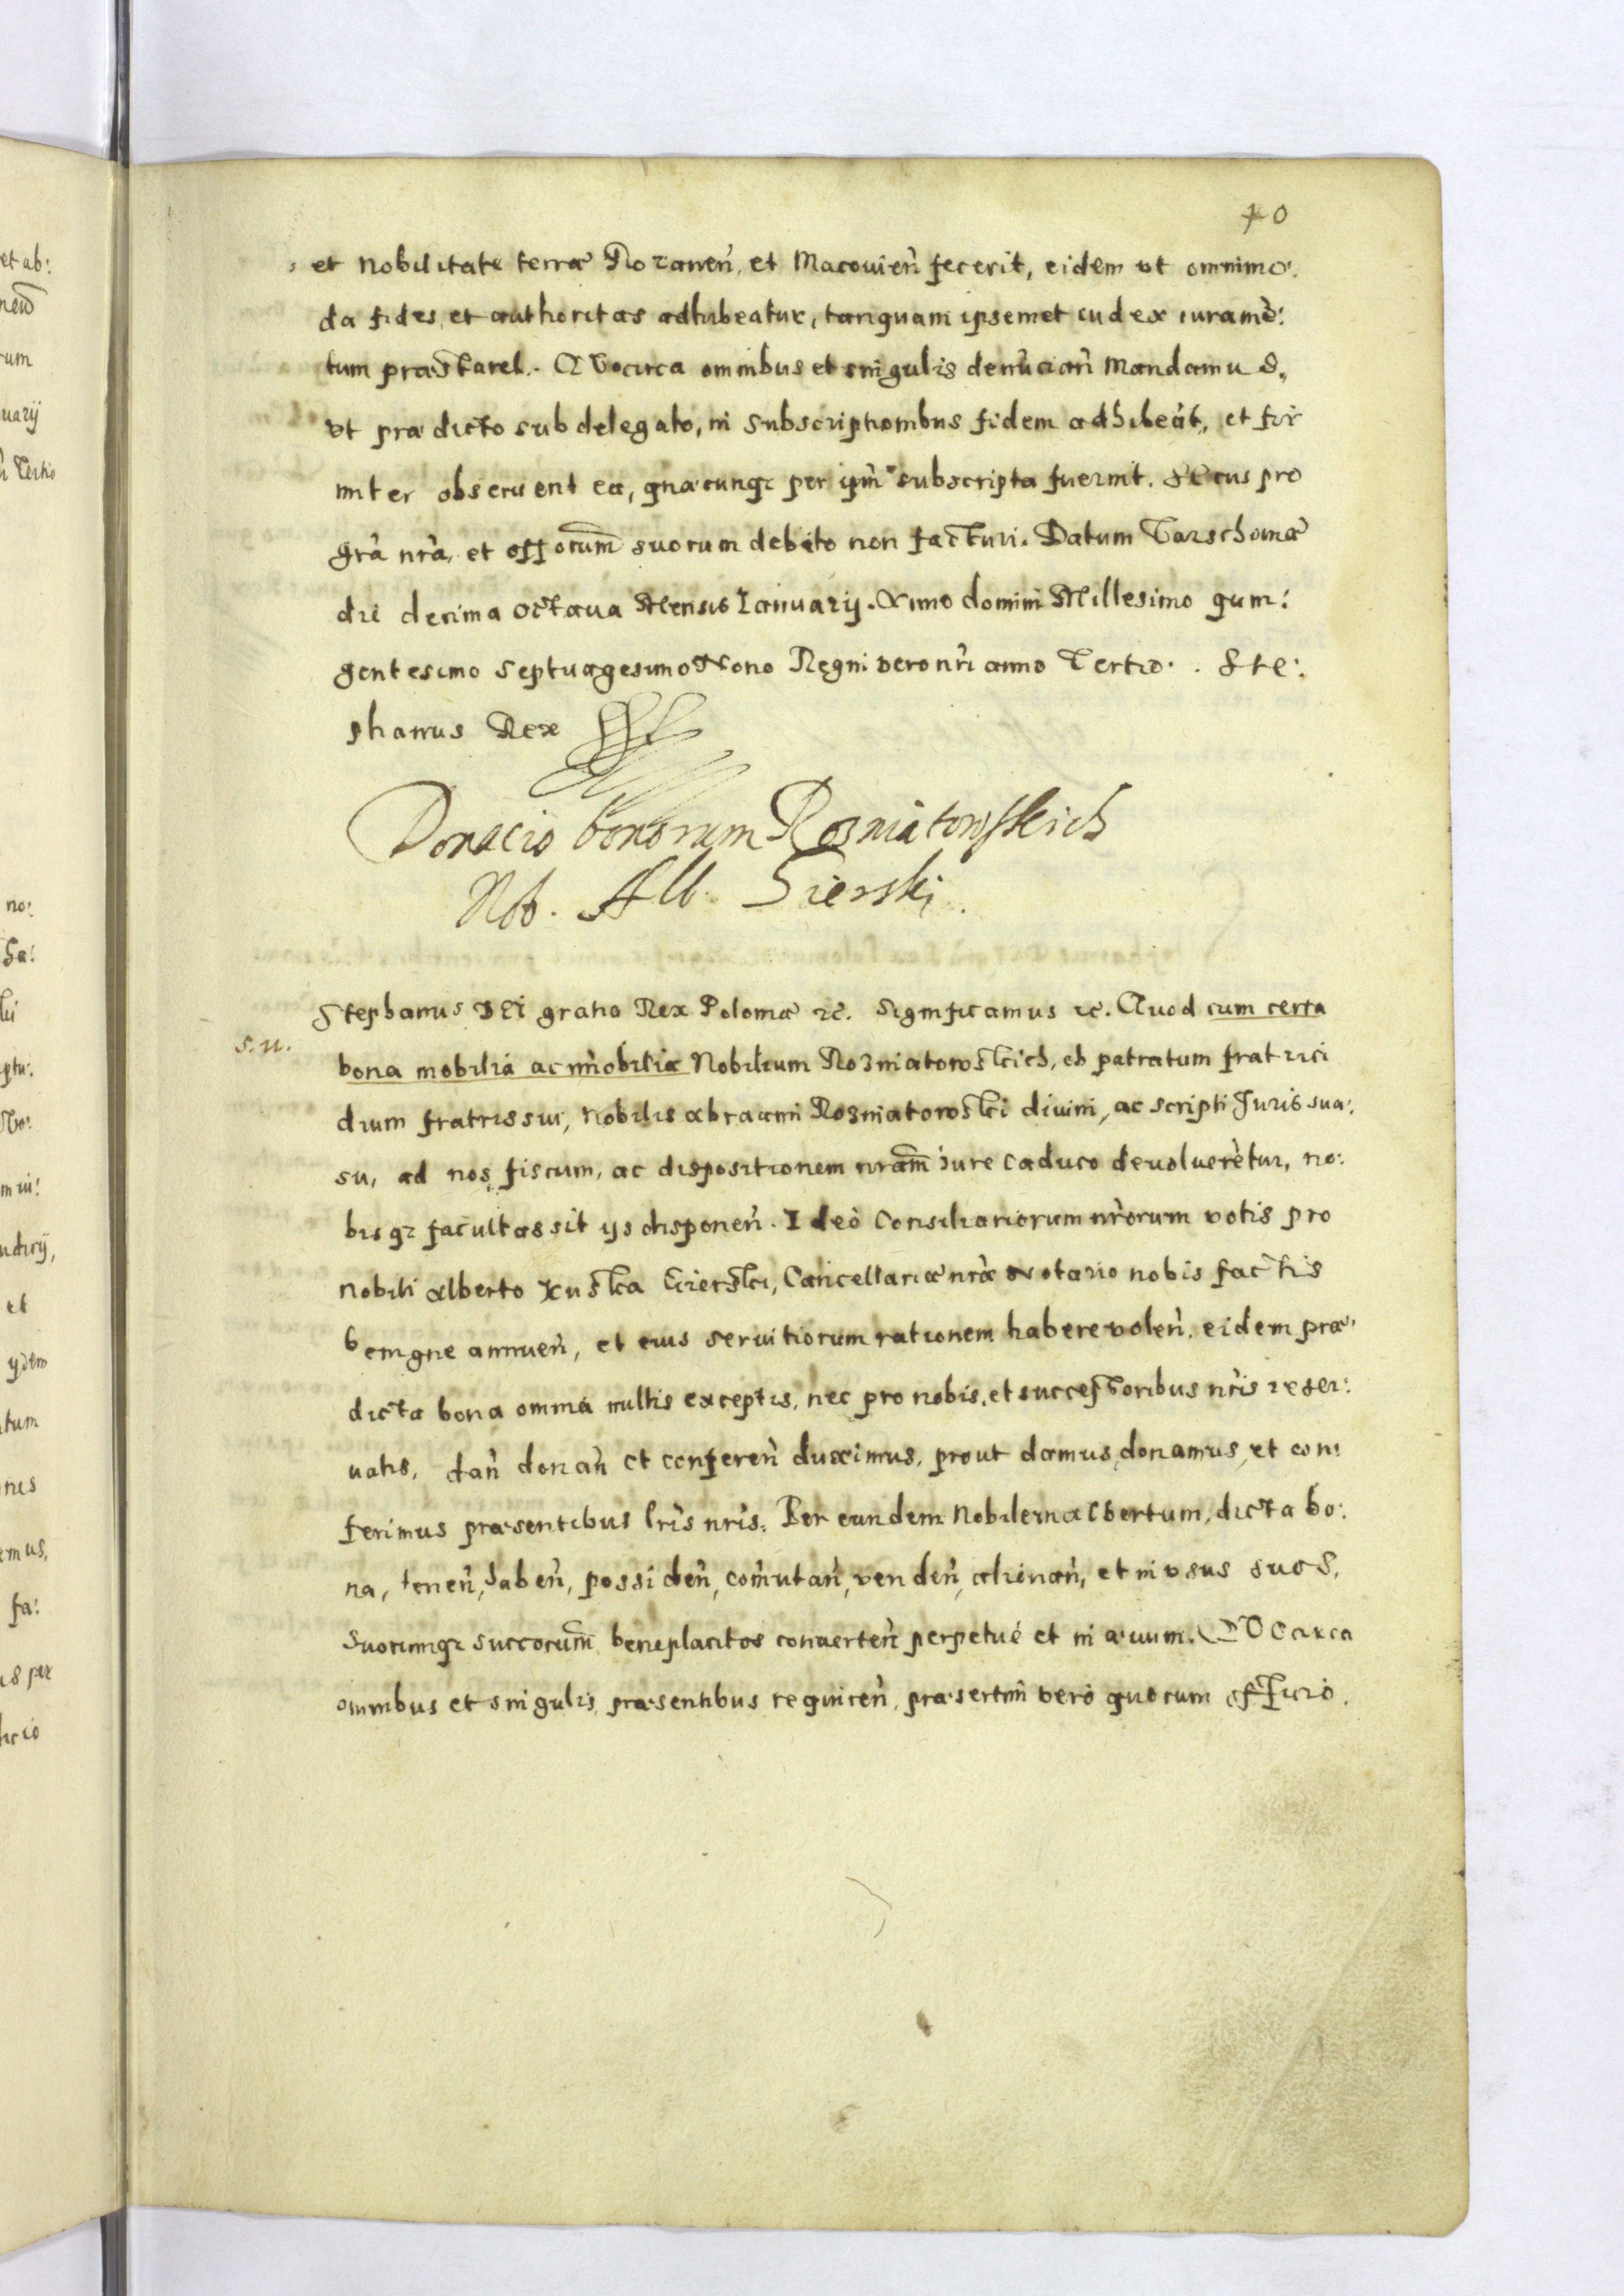 40
et Nobilitate terræ Rozanen̄, et Macouien̄ fecerit, eidem vt omnimo:
da fides, et authoritas adhibeatur, tanquam ipsemet iudex iuramē:
tum præstaret. Quocirca omnibus et singulis denūcian̄ Mandamus,
vt prædicto subdelegato, in subscriptionibus fidem adhibeāt, et fir
miter obseruent ea, quæcunqz per ipm̄ subscripta fuerint. Secus pro
grā nrā, et offocum̄ suorum debito non facturi. Datum Varschouiæ
die decima octaua Mensis Ianuarij. Anno domini Millesimo quin:
gentesimo septuagesimo Nono Regni vero nr̄i anno Tertio. Ste:
phanus Rex
Donacio bonorum Rosniatowskich
Nob. Alb. Gierski
Stephanus DEI gratia Rex Poloniæ zc̄. Significamus zc̄. Quod cum certa
S. N.
bona mobilia ac im̄obilia Nobilium Rozniatowskich, ob patratum fratrici
dium fratris sui, Nobilis Abraami Rozniatowski diuini, ac scripti Juris sua:
su, ad nos, fiscum, ac dispositionem nram̄ iure caduco deuoluerētur, no:
bisqz facultas sit ijs disponen̄. Ideò Consiliariorum nr̄orum votis pro
nobili Alberto Kuska Gierski, Cancellariæ nrǣ Notario nobis factis
benigne annuen̄, et eius seruitiorum rationem habere volen̄, eidem præ,
dicta bona omnia nullis exceptis, nec pro nobis, et successoribus nr̄is reser:
uatis, dan̄ donan̄ et conferen̄ duximus, prout damus, donamus, et con:
ferimus præsentibus lr̄is nr̄is. Per eundem Nobilem Albertum, dicta bo:
na, tenen̄, haben̄, possiden̄, com̄utan̄, venden̄, alienan̄, et in vsus suos,
Suorumqz succorum̄ beneplacitos conuerten̄ perpetuè et in æuum. Quocirca
omnibus et singulis, præsentibus requiren̄, præsertim verò quorum officio